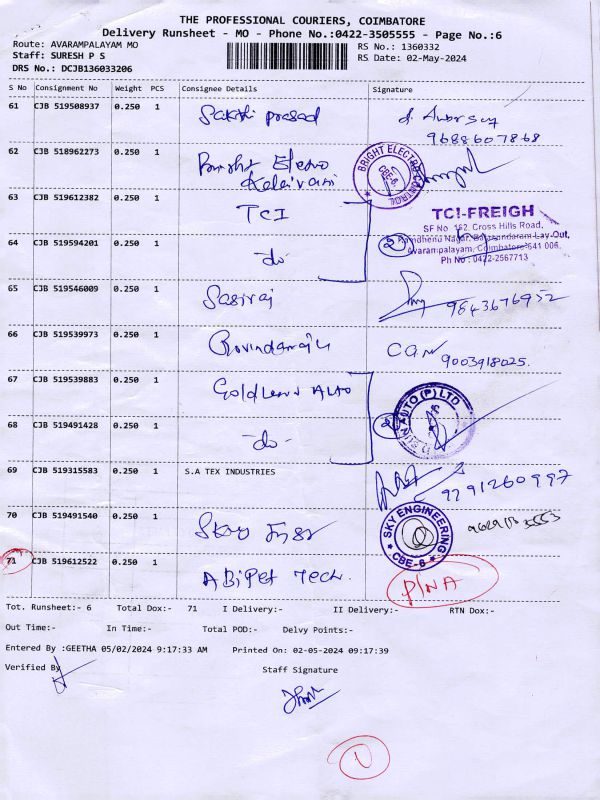 THE PROFESSIONAL COURIERS, COIMBATORE
Delivery Runsheet - MO - Phone No.:0422-3505555 - Page No.:6
Route: AVARAMPALAYAM MO
Staff: SURESH P S
DRS No.: DCJB136033206
RS No.: 1360332
RS Date: 02-May-2024
S No Consignment No Weight PCS Consignee Details Signature
61 CJB 519508937 0.250 1 Sakthi prasad
9688607868
62 CJB 518962273 0.250 1 Bright Electro
Kalaivani
BRIGHT ELECTRO CONTROL
63 CJB 519612382 0.250 1 TCI
TCI-FREIGH
SF No. 162, Cross Hills Road,
Kamdhenu Nagar, Balasundaram Lay-Out,
Avarampalayam, Coimbatore-641 006.
Ph No : 0422-2567713
64 CJB 519594201 0.250 1 -do- 2
65 CJB 519546009 0.250 1 Sasiraj 9843676952
66 CJB 519539973 0.250 1 9003918025.
67 CJB 519539883 0.250 1 AUTO
AUTO (P) LTD
68 CJB 519491428 0.250 1 -do- 2
69 CJB 519315583 0.250 1 S.A TEX INDUSTRIES 9791260997
70 CJB 519491540 0.250 1 Sky
SKY ENGINEERING
CBE-6
71 CJB 519612522 0.250 1 ABiPet Tech. P/NA
Tot. Runsheet:- 6 Total Dox:- 71 I Delivery:- II Delivery:- RTN Dox:-
Out Time:- In Time:- Total POD:- Delvy Points:-
Entered By :GEETHA 05/02/2024 9:17:33 AM Printed On: 02-05-2024 09:17:39
Verified By Staff Signature
1